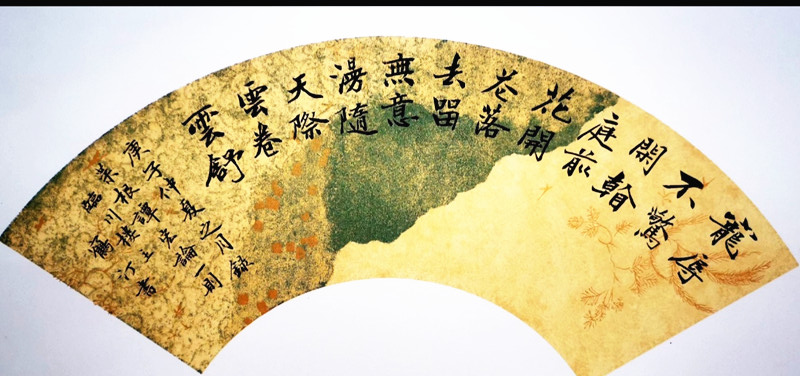 寵辱
不驚
閑看
庭前
花開
花落
去留
無意
漫隨
天際
雲卷
雲舒
庚子仲夏之月錄
菜根譚宏論一則
臨川樓上
鶴汀書